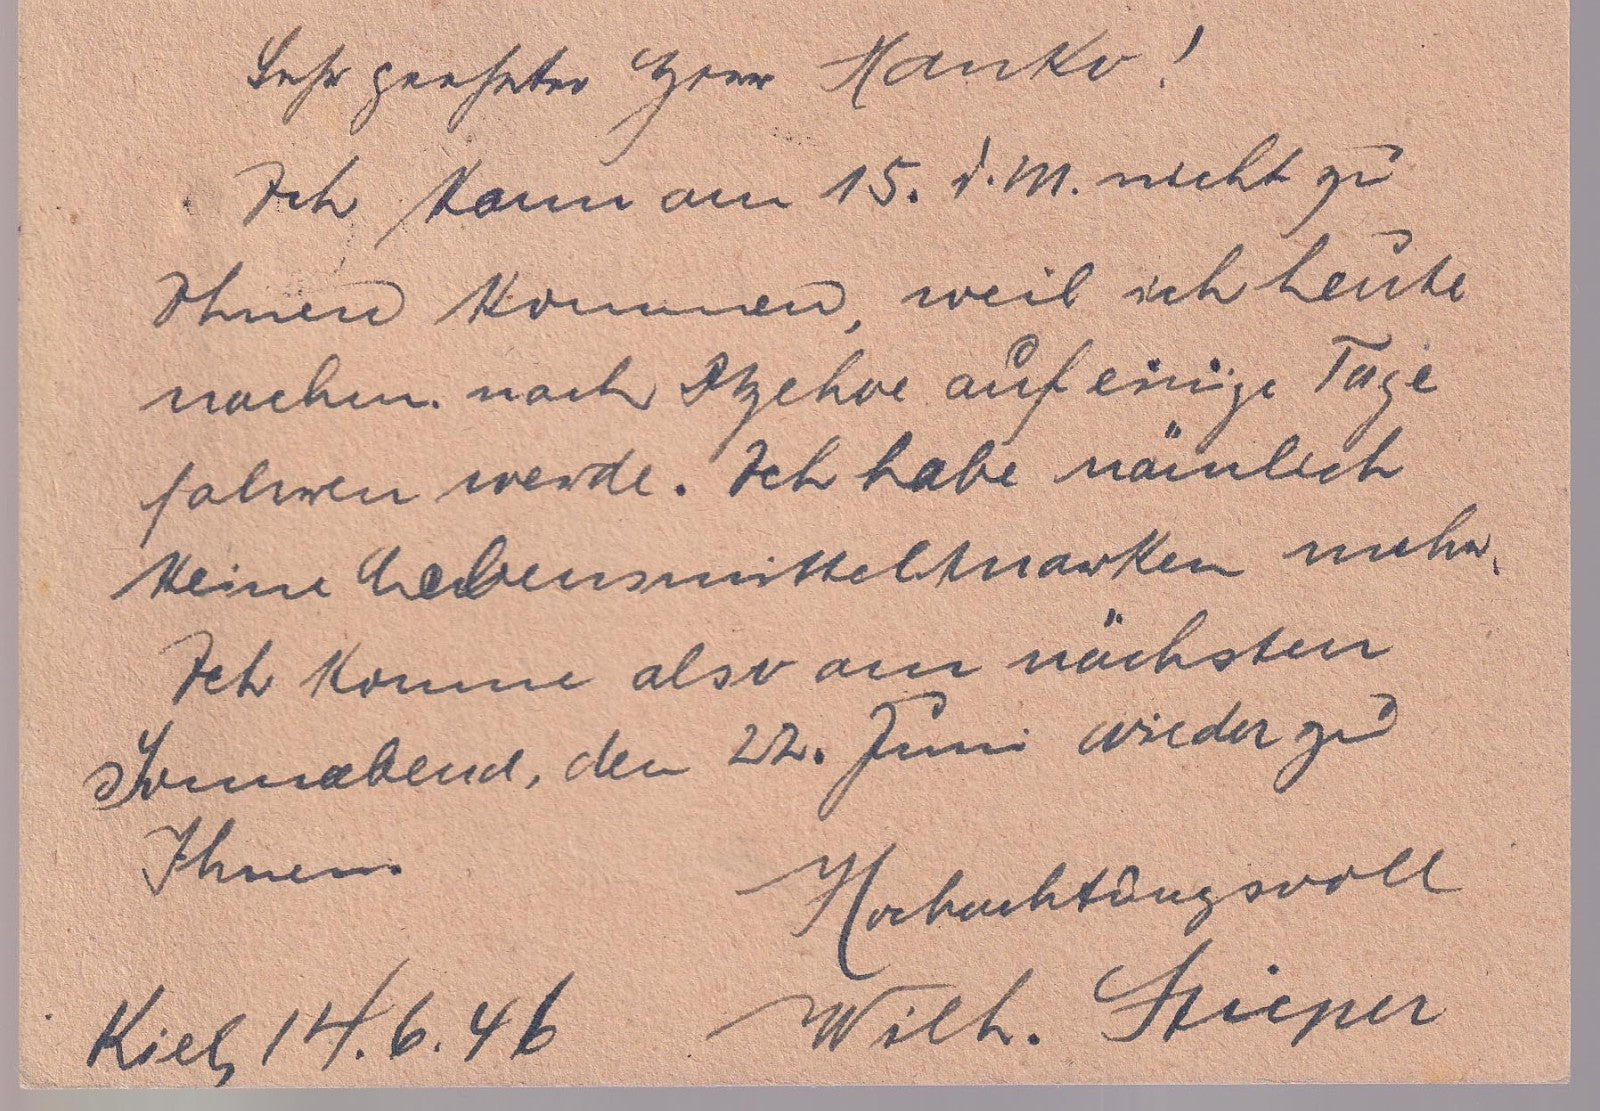 Sehr geehrter Herr Manko!
Ich kann am 15. d. M. nicht zu
Ihnen kommen, weil ich heute
nachm. nach Itzehoe auf einige Tage
fahren werde. Ich habe nämlich
keine Lebensmittelmarken mehr.
Ich komme also am nächsten
Sonnabend, den 22. Juni wieder zu
Ihnen.
Hochachtungsvoll
Kiel, 14.6.46 Wilh. Stieper